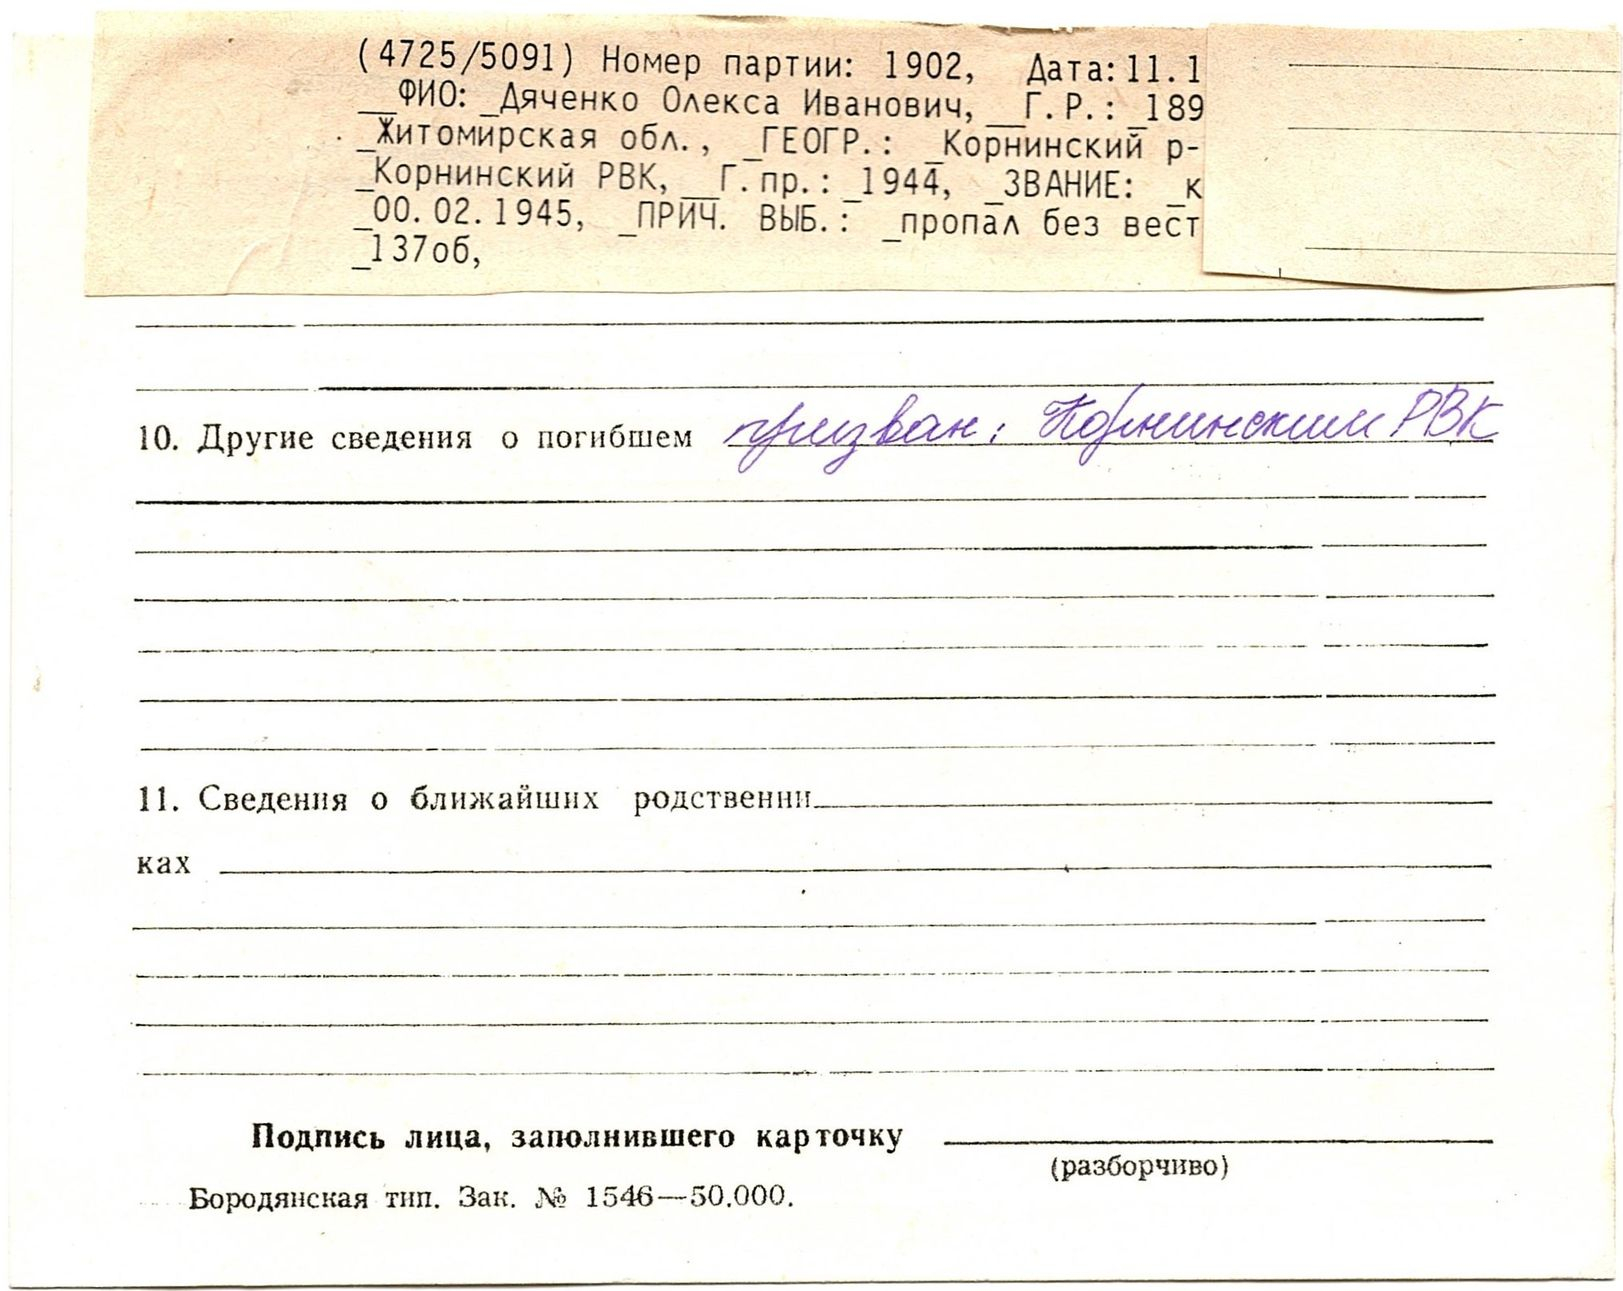 (4725/5091) Номер партии: 1902, Дата: 11.1
__ФИО: _Дяченко Олекса Иванович, __Г.Р.: _189
_Житомирская обл., _ГЕОГР.: _Корнинский р-
_Корнинский РВК, __Г.пр.: _1944, _ЗВАНИЕ: _к
_00.02.1945, _ПРИЧ. ВЫБ.: _пропал без вест
_137об,
10. Другие сведения о погибшем призван: Корнинским РВК
11. Сведения о ближайших родственни
ках
Подпись лица, заполнившего карточку
(разборчиво)
Бородянская тип. Зак. № 1546—50.000.